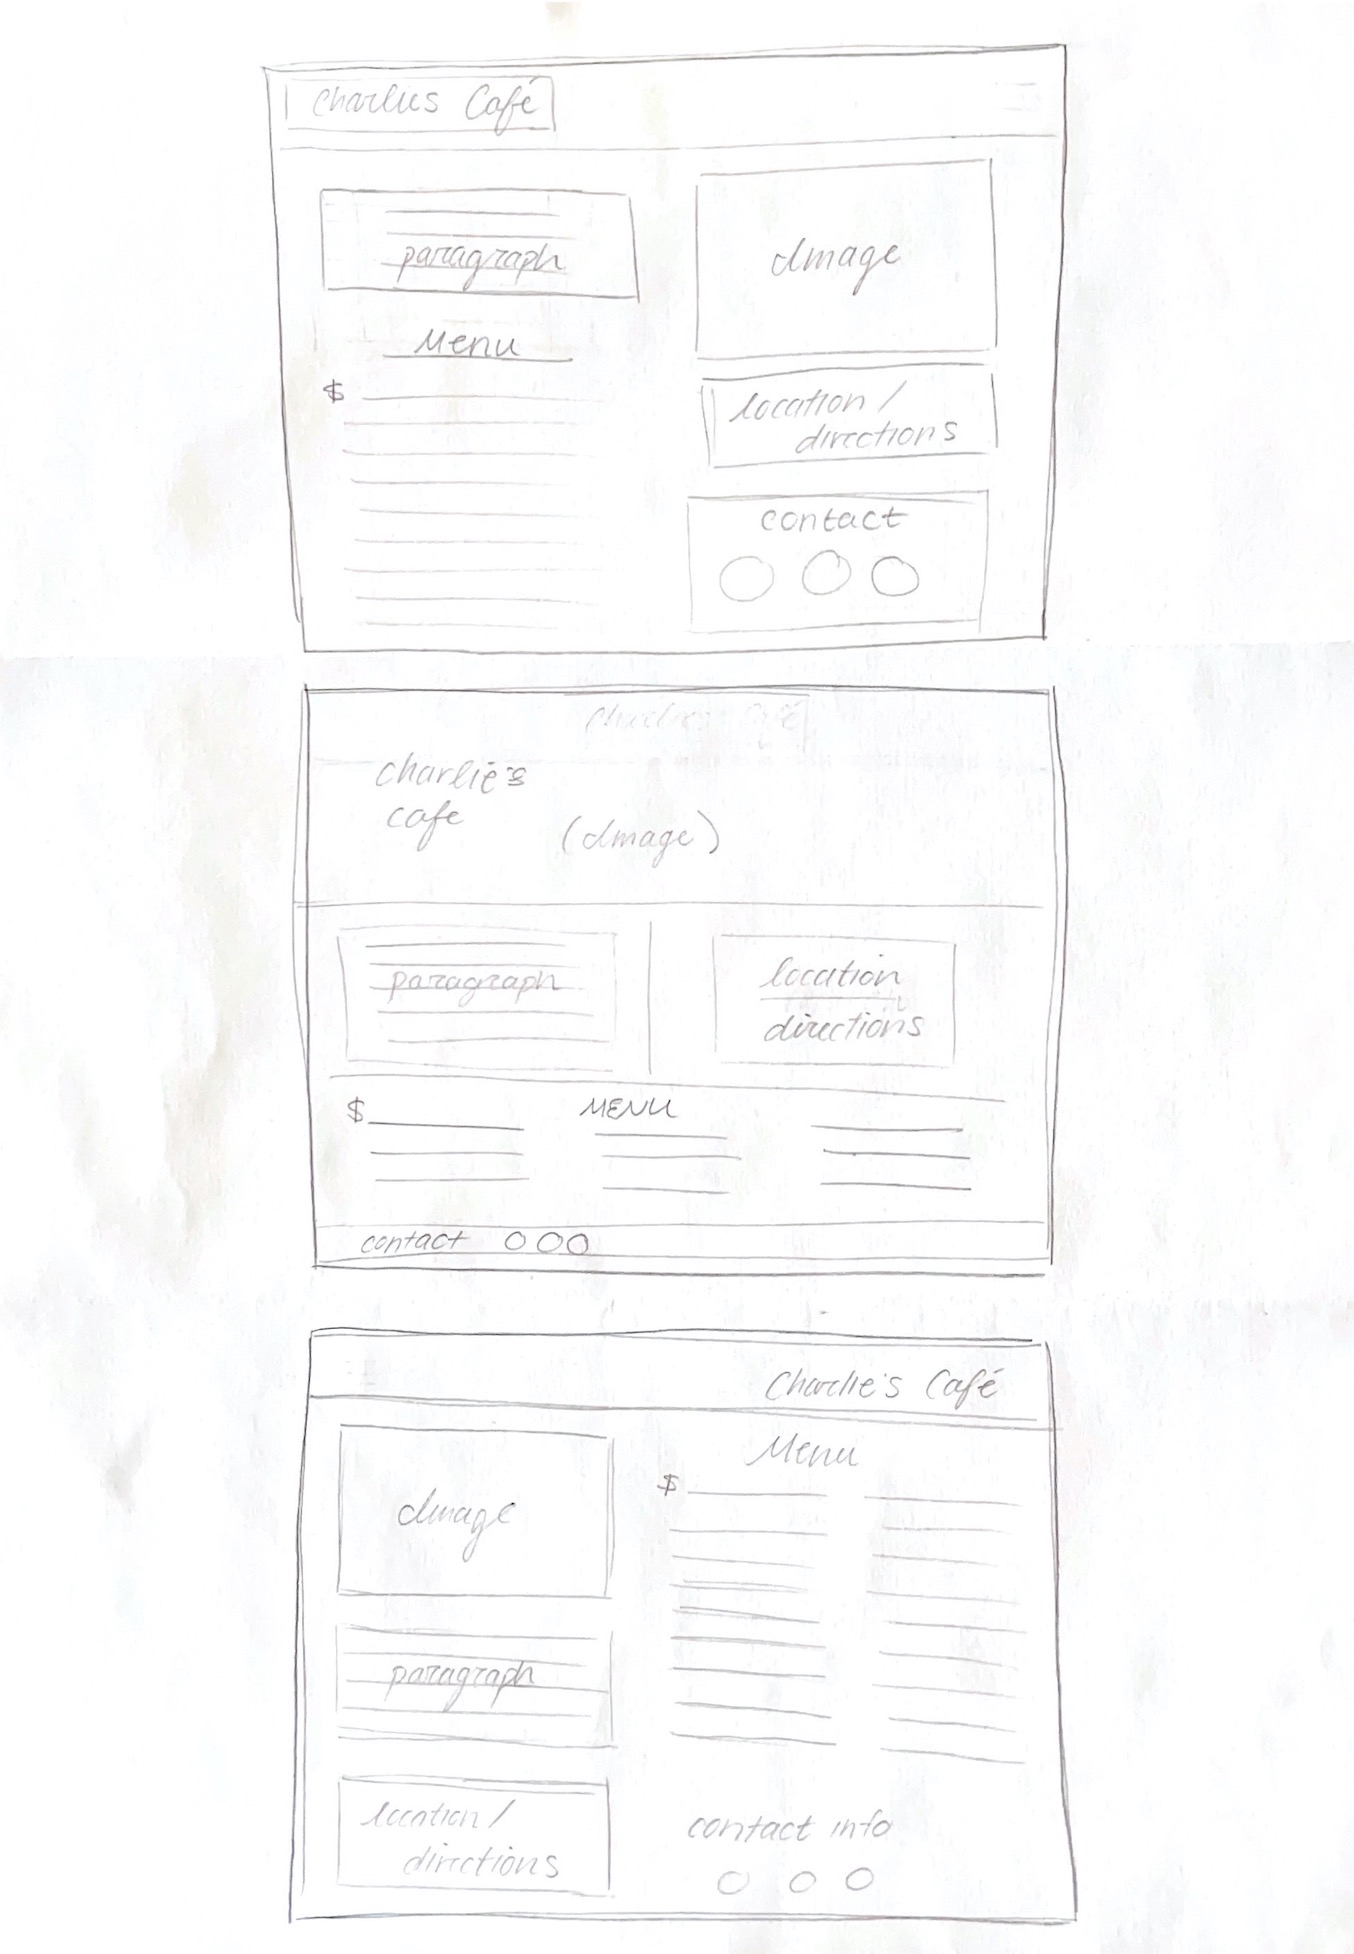 Charlies Café
paragraph
Image
Menu
$
location /
directions
contact
Charlie's Café
charlie's
cafe
(Image)
paragraph
location
directions
$
MENU
contact
Charlie's Café
Image
Menu
$
paragraph
location /
directions
contact info